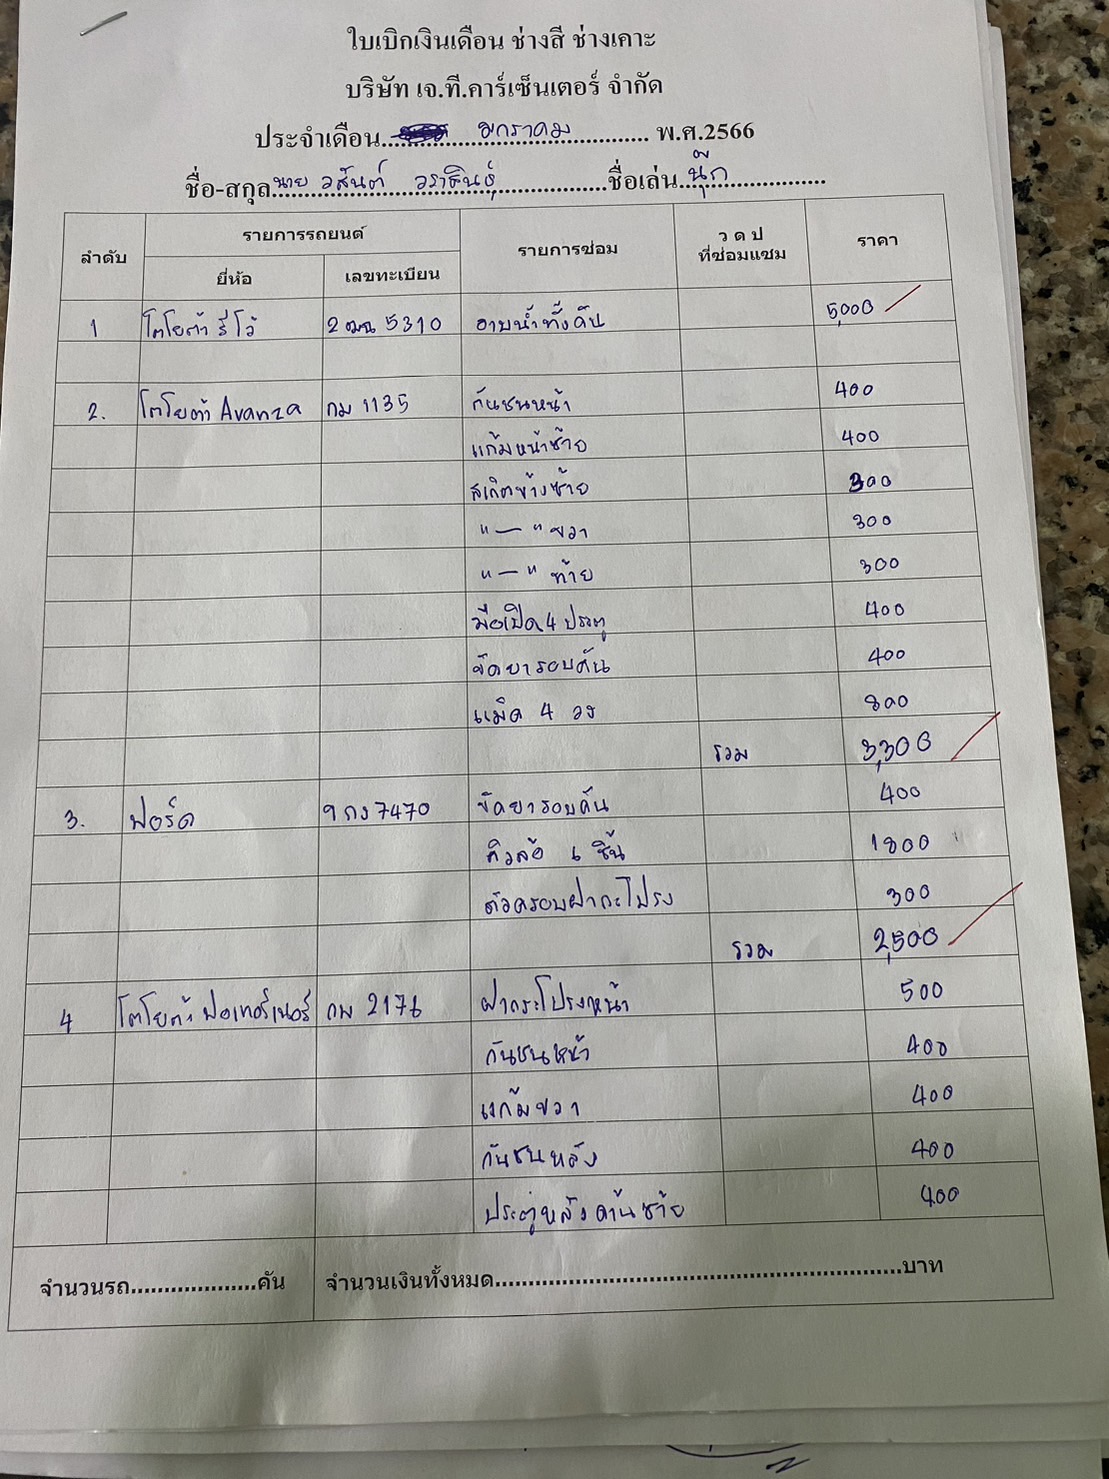 ใบเบิกเงินเดือน ช่างสี ช่างเคาะ
บริษัท เจ.ที.คาร์เซ็นเตอร์ จำกัด
ประจำเดือน................มกราคม................ พ.ศ.2566
ชื่อ-สกุล นาย วสันต์ วราสินธุ์ ชื่อเล่น..นุ๊ก
ลำดับ รายการรถยนต์ รายการซ่อม ว ด ป ที่ซ่อมแซม ราคา
ยี่ห้อ เลขทะเบียน
1 โตโยต้า รีโว้ 2ฒฌ 5310 อาบน้ำทั้งคัน 5,000
2. โตโยต้า Avanza กม 1135 กันชนหน้า 400
แก้มหน้าซ้าย 400
สเกิตข้างซ้าย 300
"—" ขวา 300
"—" ท้าย 300
มือเปิด 4 ประตู 400
ขัดยารอบคัน 400
แม็ค 4 วง 800
รวม 3,300
3. ฟอร์ด 9กง 7470 ขัดยารอบคัน 400
คิวล้อ 6 ชิ้น 1800
ตัวครอบฝากะโปรง 300
รวม 2,500
4 โตโยต้า ฟอเทอร์เนอร์ กพ 2176 ฝากระโปรงหน้า 500
กันชนหน้า 400
แก้มขวา 400
กันชนหลัง 400
ประตูหลังด้านซ้าย 400
จำนวนรถ...................คัน จำนวนเงินทั้งหมด.............................................................บาท